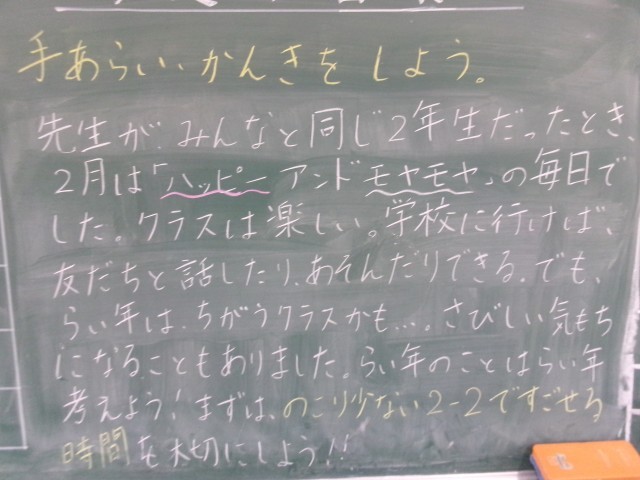 手あらい、かんきをしよう。
先生がみんなと同じ2年生だったとき、
2月は「ハッピーアンドモヤモヤ」の毎日で
した。クラスは楽しい。学校に行けば、
友だちと話したり、あそんだりできる。でも、
らい年は、ちがうクラスかも…。さびしい気もち
になることもありました。らい年のことはらい年
考えよう!まずは、のこり少ない2-2ですごせる
時間を大切にしよう!!